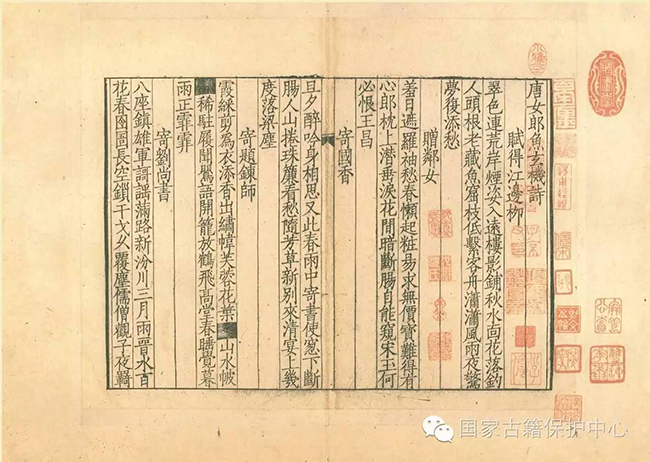 唐女郎魚玄機詩
賦得江邊柳
翠色連荒岸煙姿入遠樓影鋪秋水面花落釣
人頭根老藏魚窟枝低繫客舟瀟瀟風雨夜驚
夢復添愁
贈鄰女
羞日遮羅袖愁春懶起粧易求無價寶難得有
心郎枕上潛垂淚花間暗斷腸自能窺宋玉何
必恨王昌
寄國香
旦夕醉吟身相思又此春雨中寄書使窓下斷
腸人山捲珠簾看愁隨芳草新別來清宴上幾
度落梁塵
寄題鍊師
霞綵剪為衣添香出繡幃芙蓉花葉山水帔
稀駐履聞鶯語開籠放鶴飛高堂春睡覺暮
雨正霏霏
寄劉尚書
八座鎮雄軍謌謠滿路新汾川三月雨晉水百
花春囹圄長空鎖干戈久覆塵儒僧觀子夜羇
国家古籍保护中心